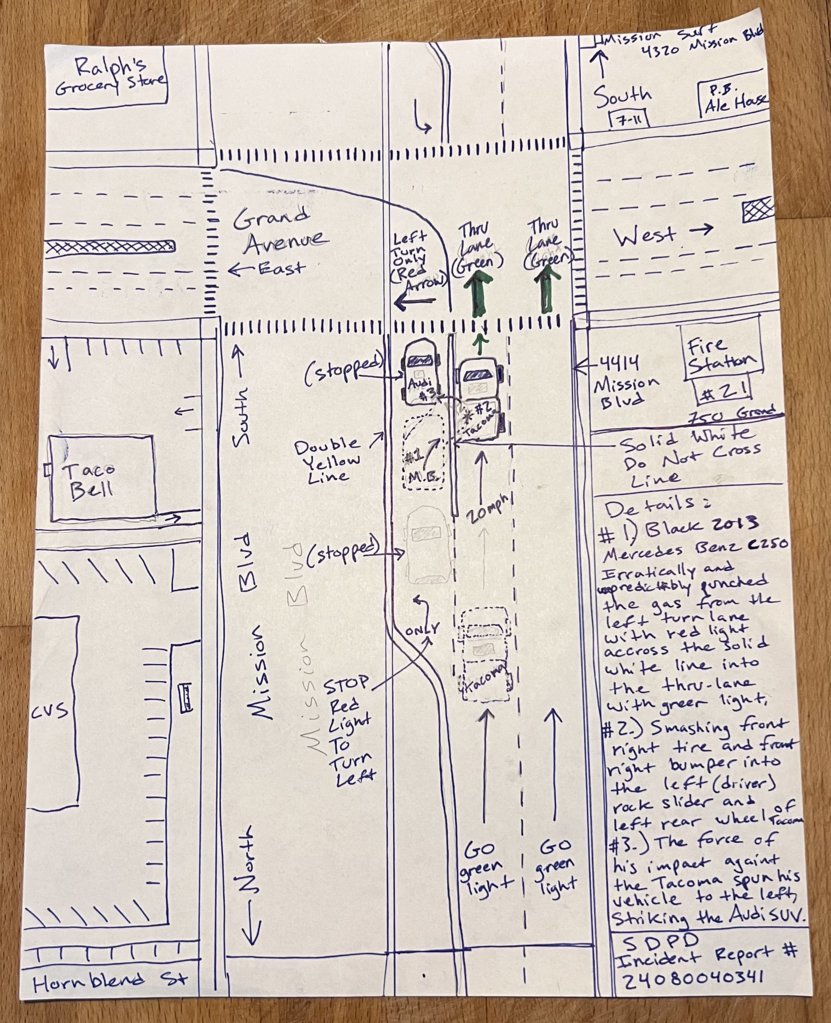 Ralph's
Grocery Store
Mission Surf
4320 Mission Blvd
South
7-11
P.B.
Ale House
Grand
Avenue
← East
Left
Turn
Only
(Red
Arrow)
Thru
Lane
(Green)
Thru
Lane
(Green)
West →
(stopped)
Audi
#3
#2
Tacoma
4414
Mission
Blvd
Fire
Station
#21
750 Grand
South
Double
Yellow
Line
#1
M.B.
Solid White
Do Not Cross
Line
Taco
Bell
20mph
(stopped)
Mission Blvd
Mission Blvd
ONLY
Tacoma
STOP
Red
Light
To
Turn
Left
CVS
North
GO
green
light
GO
green
light
Hornblend St
Details:
#1) Black 2013
Mercedes Benz C250
Erratically and
unpredictably punched
the gas from the
left turn lane
with red light
accross the solid
white line into
the thru-lane
with green light,
#2.) Smashing front
right tire and front
right bumper into
the left (driver)
rock slider and
left rear wheel of
Tacoma
#3.) The force of
his impact againt
the Tacoma spun his
vehicle to the left,
Striking the Audi SUV.
SDPD
Incident Report #
24080040341